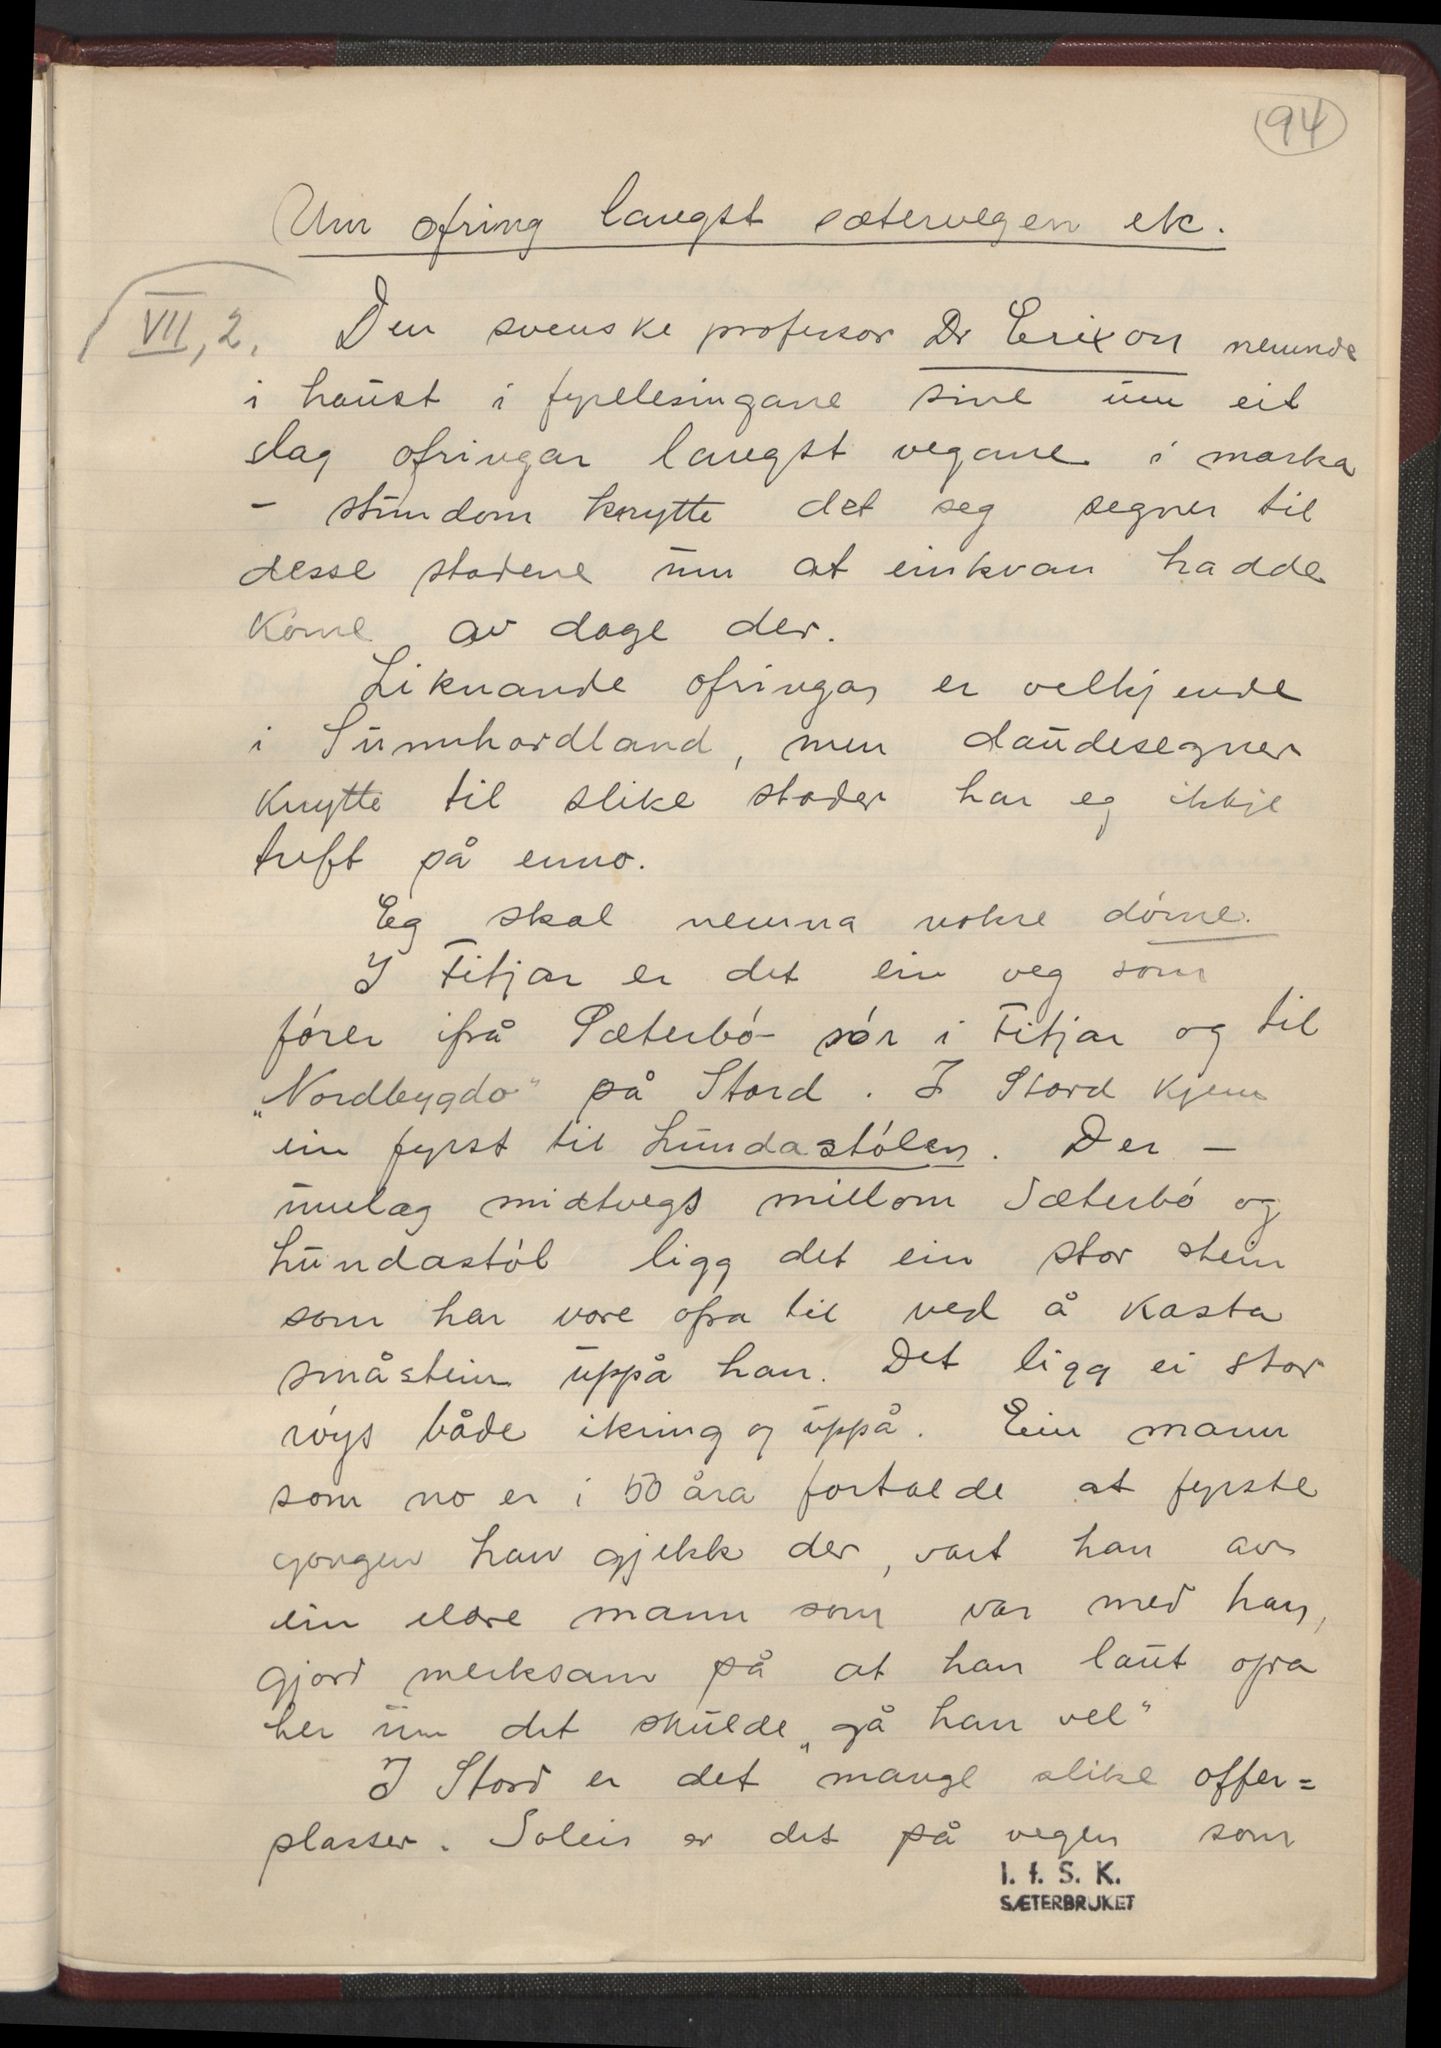 94
Um ofring langst sætervegen etc.
VII, 2. Den svenske professor Dr Erixon nemnde
i haust i fyrelesingane sine um eit
slag ofringar langst vegane i marka
- stundom knytte det seg segner til
desse stadene um at einkvan hadde
kome av dage der.
Liknande ofringar er velkjende
i Sunnhordland, men daudesegner
knytte til slike stader har eg ikkje
treft på enno.
Eg skal nemna nokre døme.
I Fitjar er det ein veg som
fører ifrå Sæterbø sør i Fitjar og til
„Nordbygdo" på Stord. I Stord kjem
ein fyrst til Lundastølen. Der -
umlag midtvegs millom Sæterbø og
Lundastøl ligg det ein stor stein
som har vore ofra til ved å kasta
småstein uppå han. Det ligg ei stor
røys både ikring og uppå. Ein mann
som no er i 50 åra fortalde at fyrste
gongen han gjekk der, vart han av
ein eldre mann som var med han,
gjord merksam på at han laut ofra
her um det skulde „gå han vel"
I Stord er det mange slike offer=
plasser. Soleis er det på vegen som
I. f. S. K.
SÆTERBRUKET